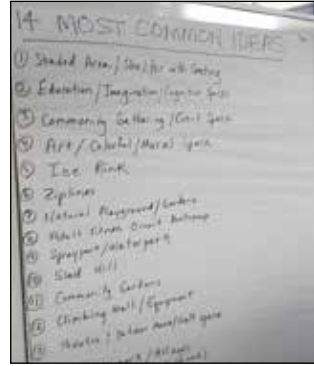 14 MOST COMMON IDEAS
① Shaded Area / Shelter with Seating
② Education / Imagination / Cognitive Space
③ Community Gathering / Event Space
④ Art / Colorful / Mural Space
⑤ Ice Rink
⑥ Ziplines
⑦ Natural Playground / Gardens
⑧ Adult Fitness Circuit
⑨ Spraypark / Waterpark
⑩ Sled Hill
⑪ Community Gardens
⑫ Climbing Wall / Equipment
⑬ Theatre / Outdoor